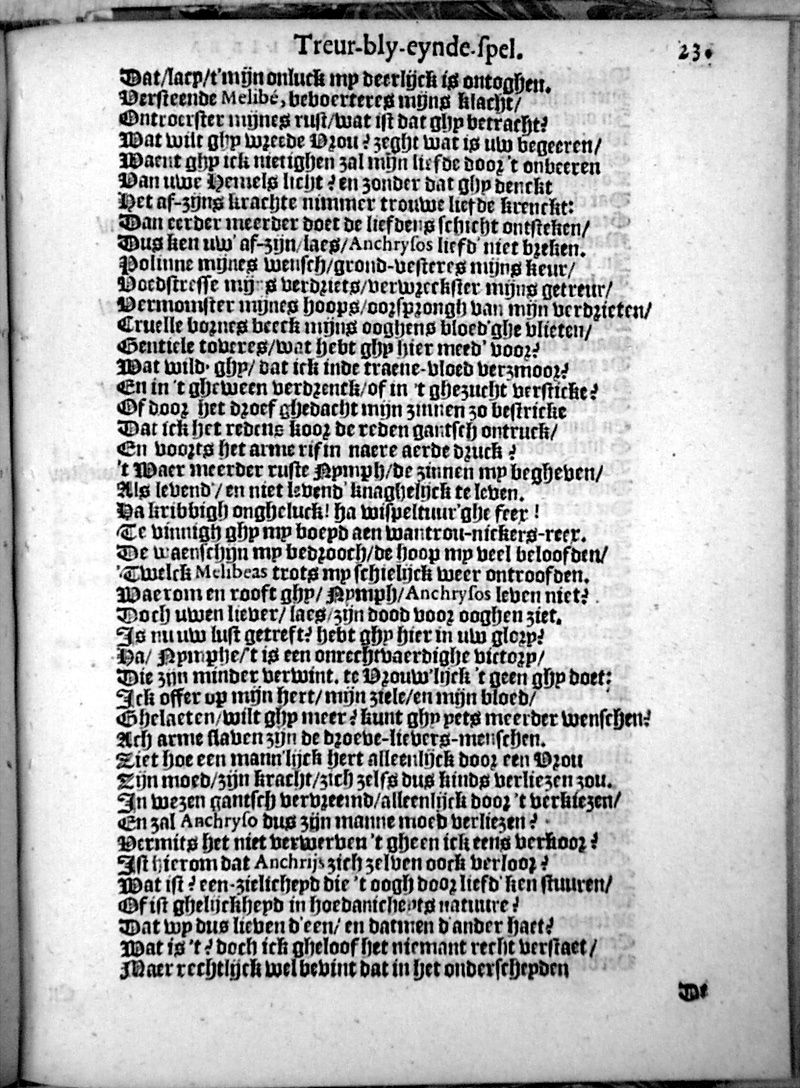 Treur-bly-eynde-spel. 23.
Dat/lacy/t'mijn onluck my deerlijck is ontoghen.
Versteende Melibé, beboerteres mijns klacht/
Ontroerster mijnes rust/wat ist dat ghy betracht?
Wat wilt ghy wreede Vrou? zeght wat is uw begeeren/
Waent ghy ick nietighen zal mijn liefde door 't onbeeren
Van uwe Hemels licht? en zonder dat ghy denckt
Het af-zijns krachte nimmer trouwe liefde krenckt:
Dan eerder meerder doet de liefdens schicht ontsteken/
Dus ken uw' af-zijn/laes/Anchrysos liefd' niet breken.
Polinne mijnes wensch/grond-vesteres mijns keur/
Voedstresse mijns verdriets/verwreckster mijns getreur/
Vermomster mijnes hoops/oorsprongh van mijn verdrieten/
Cruelle bornes beeck mijns ooghens bloed'ghe vlieten/
Gentiele toveres/wat hebt ghy hier meed' voor?
Wat wild' ghy/dat ick inde traene-vloed verzmoor?
En in 't gheween verdrenck/of in 't ghezucht versticke?
Of door het droef ghedacht mijn zinnen zo bestricke
Dat ick het redens koor de reden gantsch ontruck/
En voorts het arme rif in naere aerde druck?
't Waer meerder ruste Nymph/de zinnen my begheven/
Als levend'/en niet levend' knaghelijck te leven.
Ha kribbigh ongheluck! ha wispeltuur'ghe feex!
Te vinnigh ghy my boeyd aen wantrou-nickers-reex.
De waenschijn my bedrooch/de hoop my veel beloofden/
'Twelck Melibeas trots my schielijck weer ontroofden.
Waerom en rooft ghy/Nymph/Anchrysos leven niet?
Doch uwen liever/laes/zijn dood voor ooghen ziet.
Is nu uw lust getreft? hebt ghy hier in uw glory?
Ha/Nymphe/'t is een onrechtvaerdighe victory/
Die zijn minder verwint. te Vrouw'lijck 't geen ghy doet:
Ick offer op mijn hert/mijn ziele/en mijn bloed/
Ghelaeten/wilt ghy meer? kunt ghy yets meerder wenschen?
Ach arme slaven zijn de droeve-lievers-menschen.
Ziet hoe een mann'lijck hert alleenlijck door een Vrou
Zijn moed/zijn kracht/zich zelfs dus kinds verliezen zou.
In wezen gantsch vervreemd/alleenlijck door 't verkiezen/
En zal Anchryso dus zijn manne moed verliezen?
Vermits het niet verwerven 't gheen ick eens verkoor?
Ist hierom dat Anchrijs zich zelven oock verloor?
Wat ist? een-zielicheyd die 't oogh door liefd' ken stuuren/
Of ist ghelijckheyd in hoedanicheyts natuure?
Dat wy dus lieven d'een/en datmen d'ander haet?
Wat is 't? doch ick gheloof het niemant recht verstaet/
Maer rechtlijck wel bevint dat in het onderscheyden
De